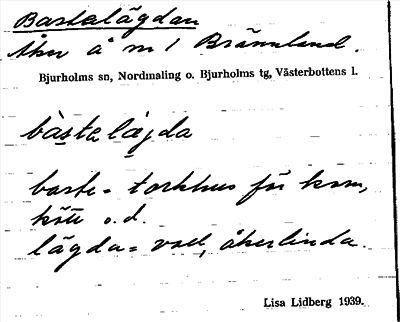 Bastelägdan
Åker å m/ Brännland.
Bjurholms sn, Nordmaling o. Bjurholms tg, Västerbottens l.
bàstelægda
baste = torkhus för korn,
kött o.d.
lägda = vall, åkerlinda.
Lisa Lidberg 1939.